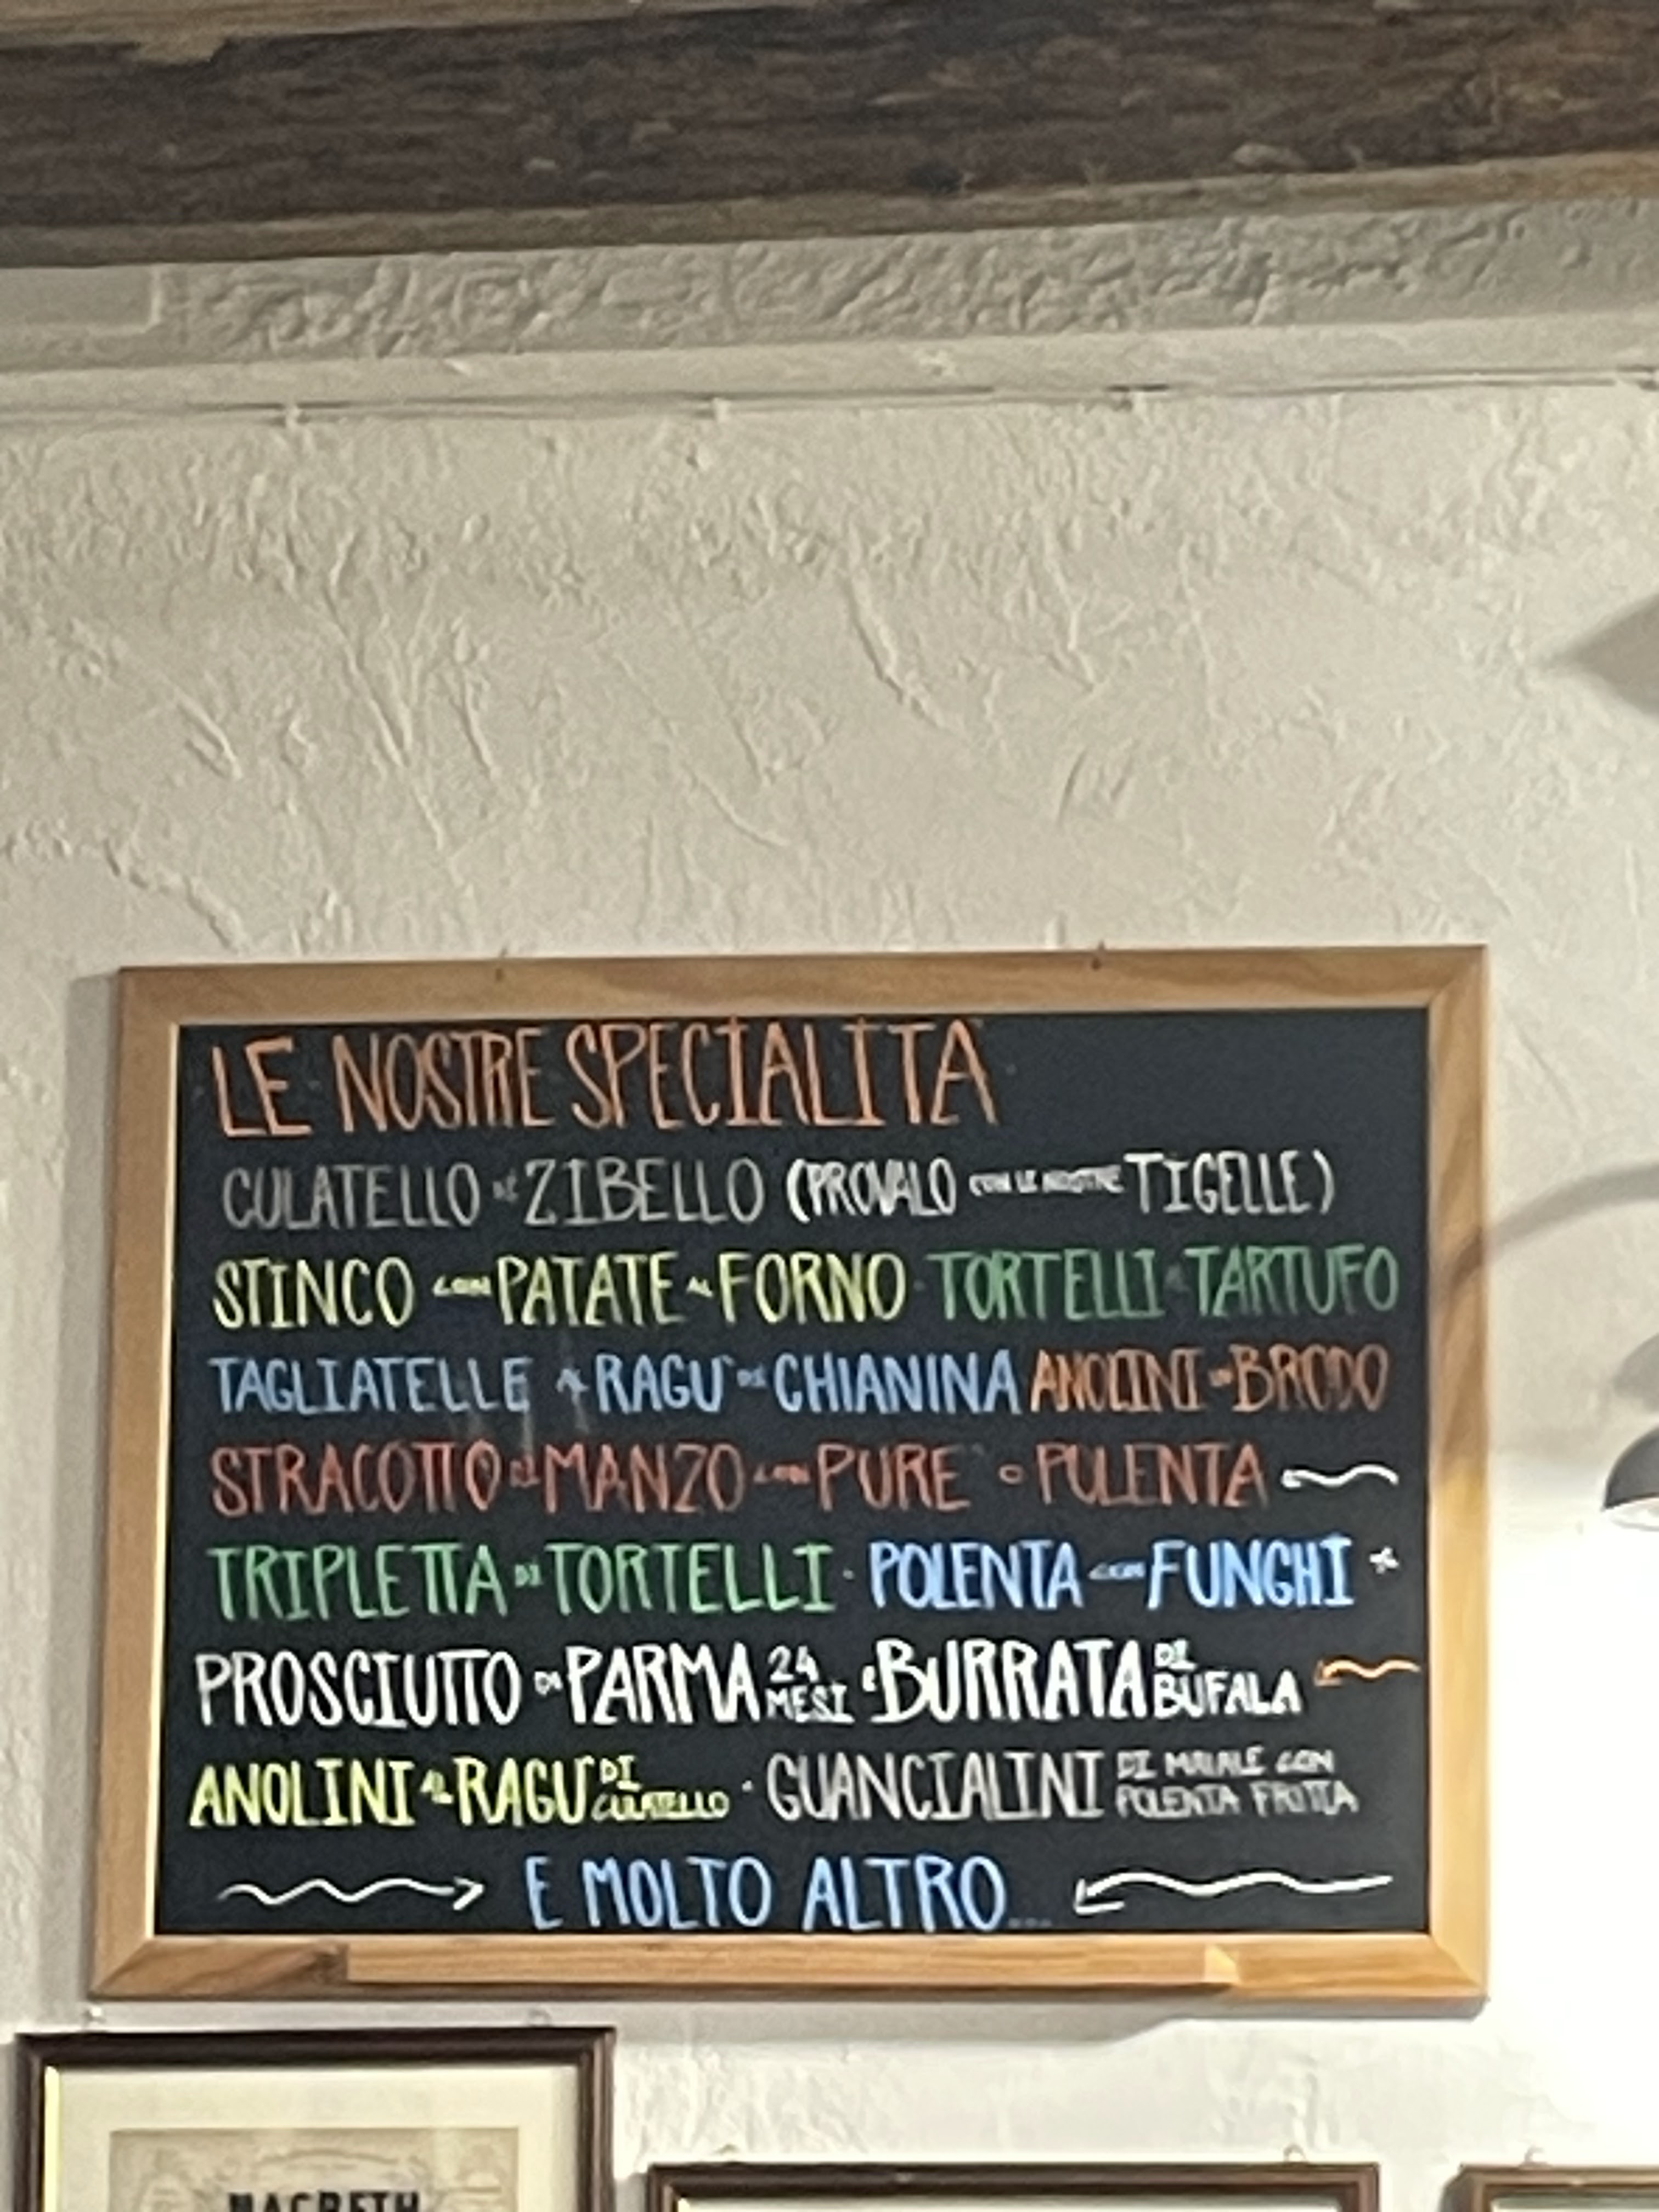 LE NOSTRE SPECIALITA
CULATELLO DI ZIBELLO (PROVALO CON LE NOSTRE TIGELLE)
STINCO CON PATATE AL FORNO TORTELLI TARTUFO
TAGLIATELLE AL RAGU' DI CHIANINA ANOLINI IN BRODO
STRACOTTO DI MANZO CON PURE' O POLENTA
TRIPLETTA DI TORTELLI · POLENTA CON FUNGHI
PROSCIUTTO DI PARMA 24 MESI E BURRATA DI BUFALA
ANOLINI AL RAGU' DI CULATELLO · GUANCIALINI DI MAIALE CON POLENTA FRITTA
E MOLTO ALTRO...
MACBETH